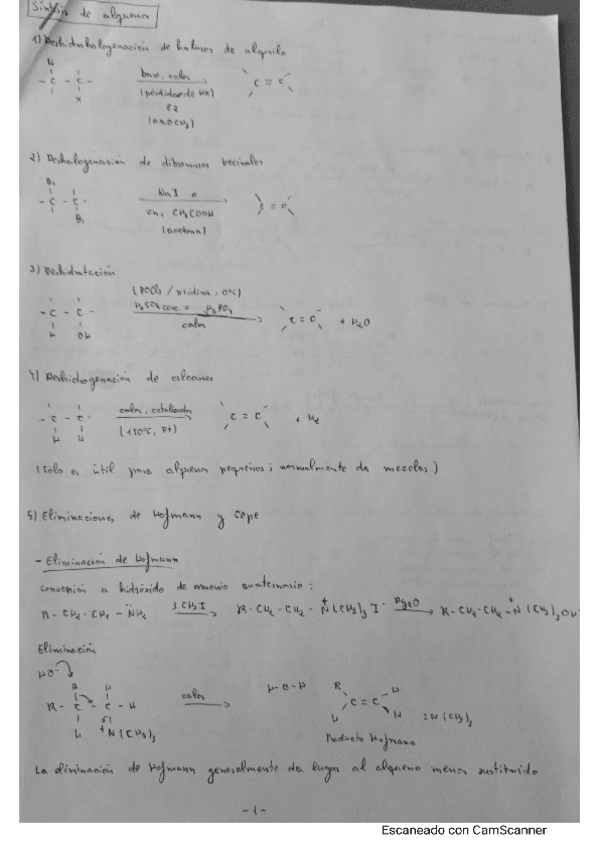 Síntesis de alquenos
1) Deshidrohalogenación de haluros de alquilo
H
- C - C -
X
base, calor
(pérdida de HX)
E2
(NaOCH3)
C = C
2) Deshalogenación de dibromuros vecinales
Br
- C - C -
Br
NaI o
Zn, CH3COOH
(acetona)
C = C
3) Deshidratación
- C - C -
H OH
(POCl3 / piridina, 0ºC)
H2SO4 conc o H3PO4
calor
C = C + H2O
4) Deshidrogenación de alcanos
- C - C -
H H
calor, catalizador
Pt)
C = C + H2
(Solo es útil para alquenos pequeños; normalmente da mezclas)
5) Eliminaciones de Hofmann y Cope
- Eliminación de Hofmann
Conversión a hidróxido de amonio cuaternario:
R-CH2-CH2-NH2 3 CH3I R-CH2-CH2-N+(CH3)3 I- Ag2O R-CH2-CH2-N+(CH3)3 OH-
Eliminación
HO-
H H
R - C - C - H
H +N(CH3)3
calor
H-O-H
R H
C = C
H H
:N(CH3)3
Producto Hofmann
La eliminación de Hofmann generalmente da lugar al alqueno menos sustituido
-1-
Escaneado con CamScanner